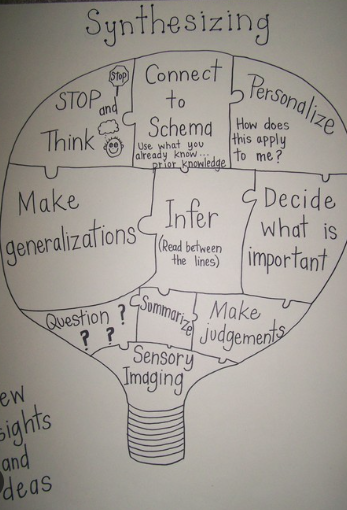 Synthesizing
STOP
and
Think
Stop
Connect
to
Schema
Use what you
already know...
prior knowledge
Personalize
How does
this apply
to me?
Make
generalizations
Infer
(Read between
the lines)
Decide
what is
important
Question ?
? ?
Summarize
Make
judgements
Sensory
Imaging
ew
sights
and
deas